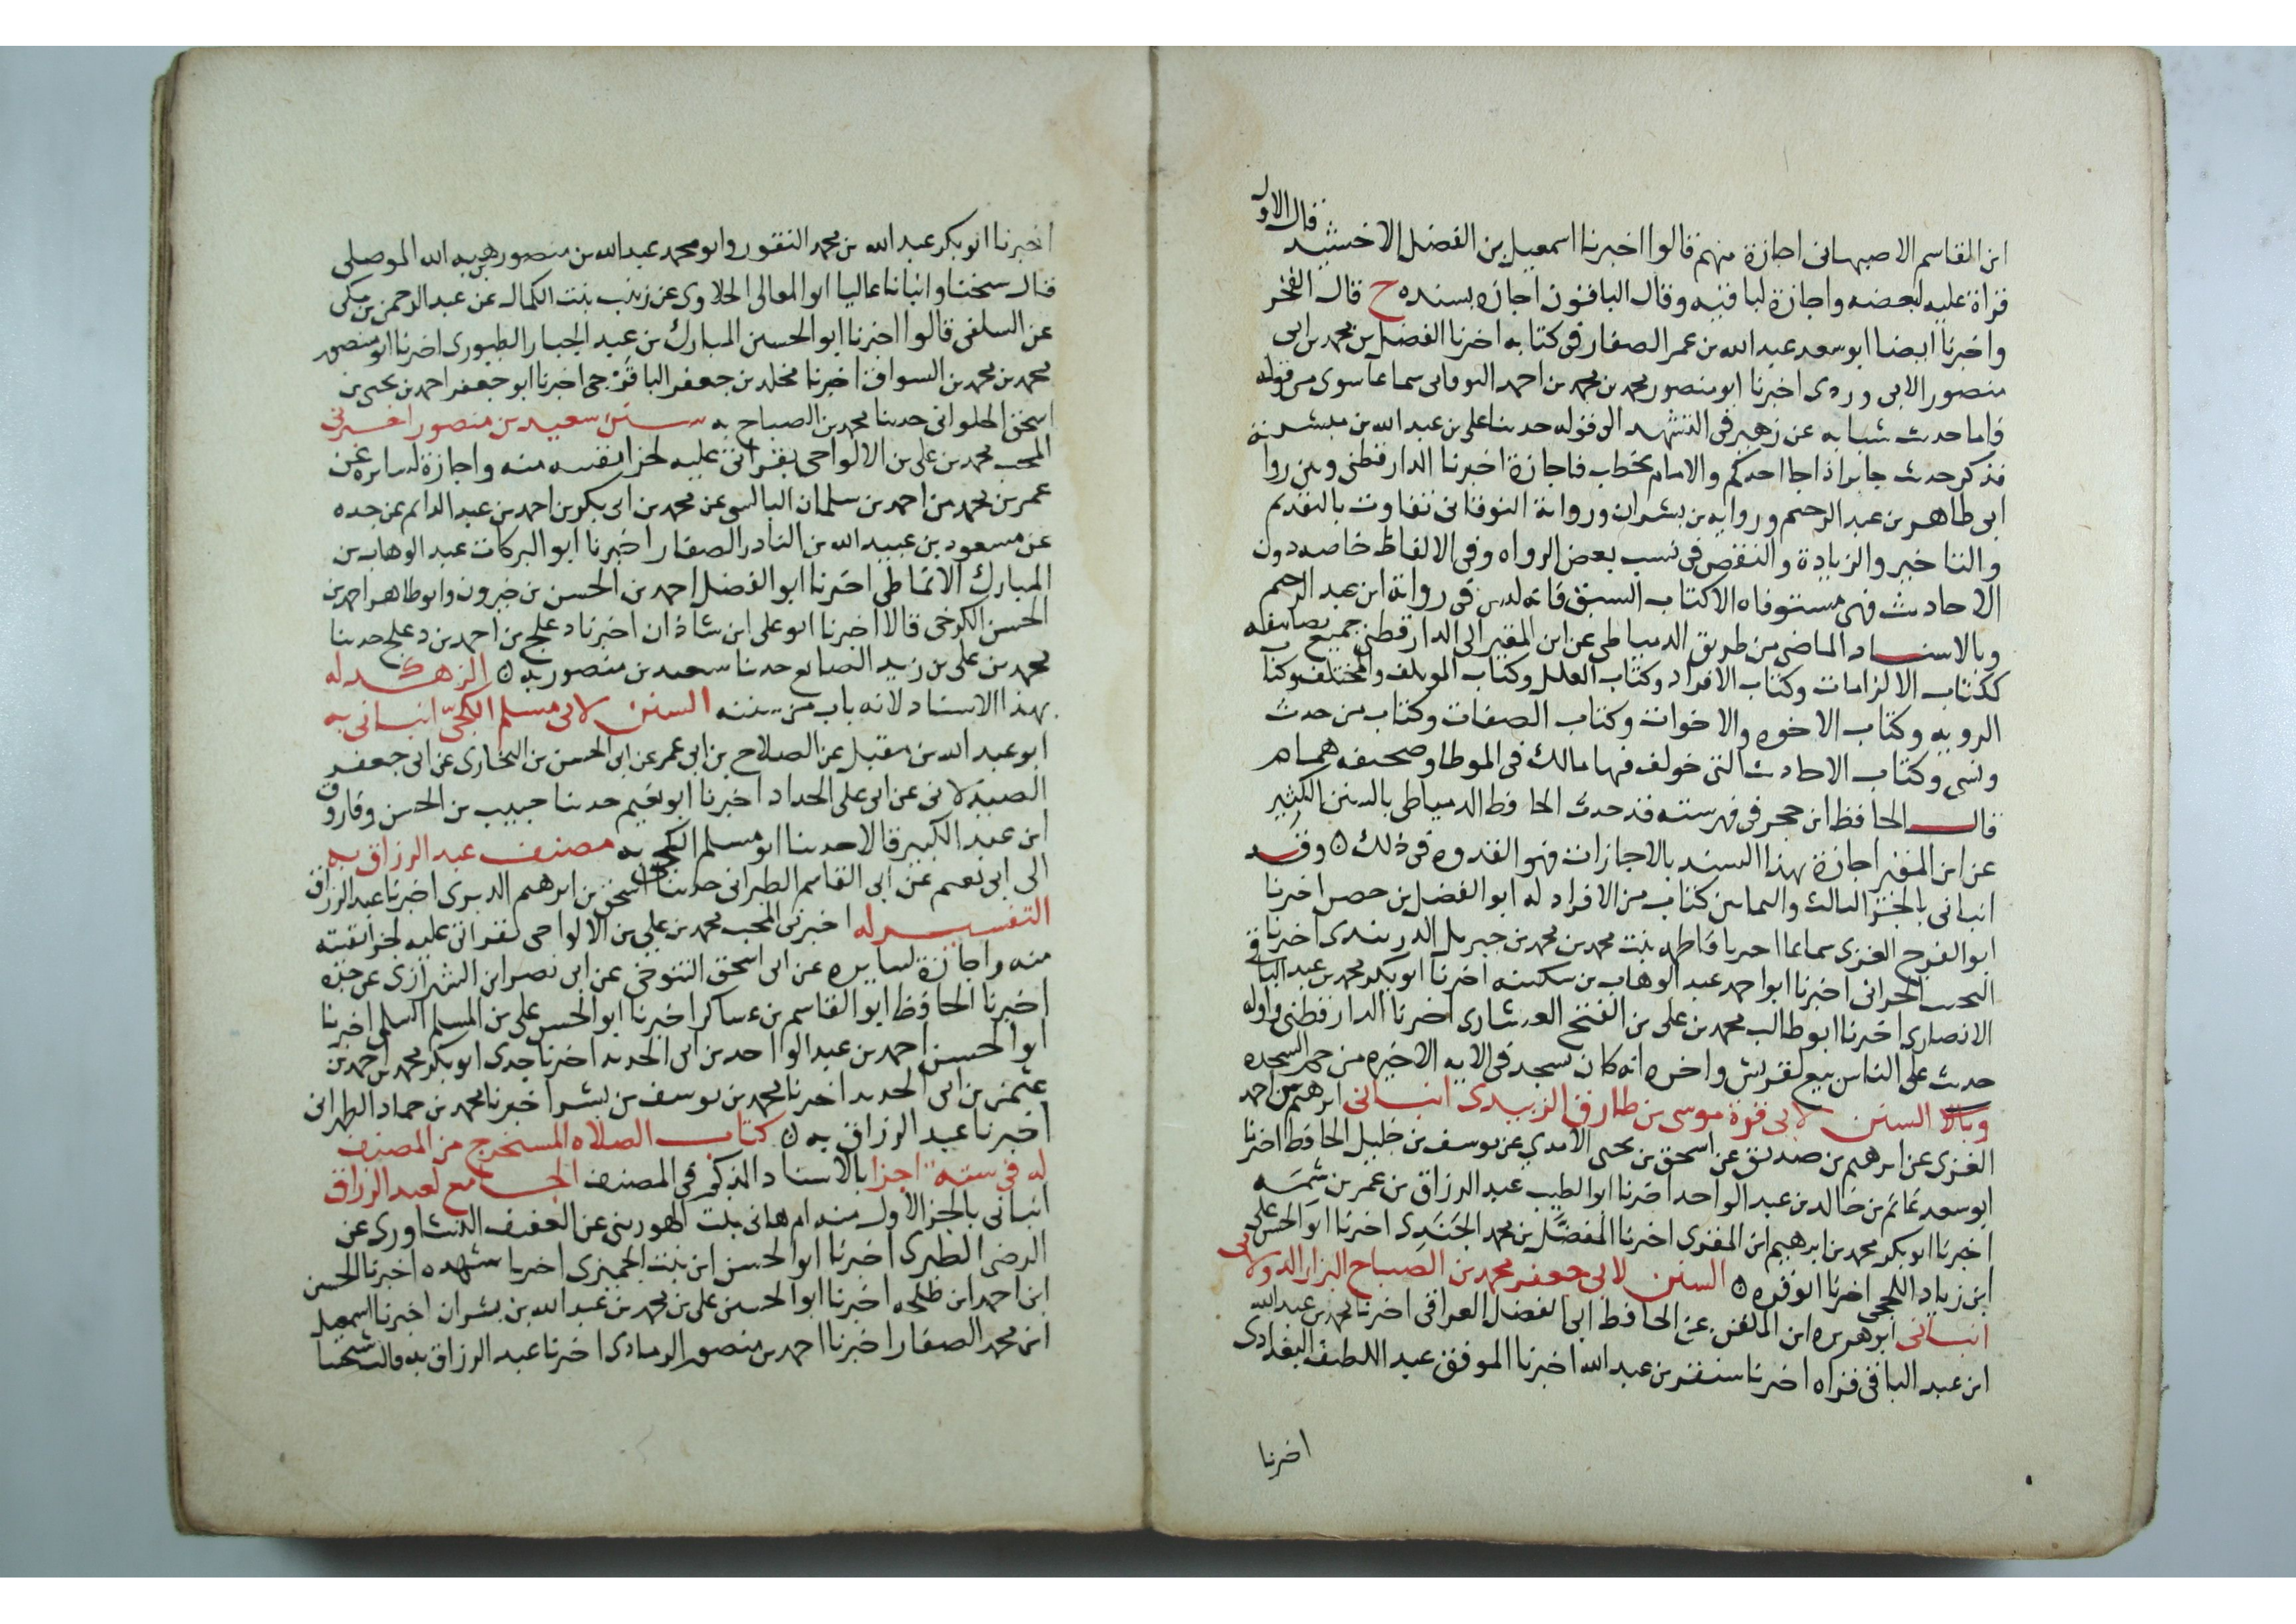 ابن القاسم الاصبهانى اجازة منهم قالوا اخبرنا اسمعيل بن الفضل الاخشيد قال الاول
قراة عليه لبعضه واجازة لباقيه وقال الباقون اجازه بسنده ح قال الفخر
واخبرنا ايضا ابو سعد عبد الله بن عمر الصفار فى كتابه اخبرنا الفضل بن محمد بن ابى
منصور الابى وردى اخبرنا ابو منصور محمد بن محمد بن احمد النوقانى سماعا سوى من قوله
واما حديث شبابه عن زهير فى التشهد الى قوله حدثنا على بن عبد الله بن مبشر
فذكر حديث جابر اذا جا احدكم والامام يخطب فاجازة اخبرنا الدارقطنى وبين روا
ابى طاهر بن عبد الرحيم وروايه بن بشران ورواية النوقانى تفاوت بالتقديم
والتاخير والزيادة والنقص فى نسب بعض الرواه وفى الالفاظ خاصه دون
الاحاديث فهى مستوفاه الا كتاب السبق فانه ليس فى رواية ابن عبد الرحيم
وبالاسناد الماضى من طريق الدمياطى عن ابن المقير الى الدارقطنى جميع تصانيفه
ككتاب الالزامات وكتاب الافراد وكتاب العلل وكتاب الموتلف والمختلف وكتاب
الرويه وكتاب الاخوه والاخوات وكتاب الصفات وكتاب من حدث
ونسى وكتاب الاحاديث التى خولف فيها مالك فى الموطا وصحيفه همام
قال الحافظ ابن حجر فى فهرسته قد حدث الحافظ الدمياطى بالسنن الكثير
عن ابن المقير اجازة بهذا السند بالاجازات فهو القدوه فى ذلك ٥ وقد
انبانى بالجز الثالث والثمانين كتاب من الافراد له ابو الفضل بن حصر اخبرنا
ابو الفرج الغزى سماعا اخبرنا فاطمه بنت محمد بن محمد بن جبريل الدربندى اخبرنا
النجيب الحرانى اخبرنا ابو احمد عبد الوهاب بن سكينه اخبرنا ابو بكر محمد بن عبد الباقى
الانصارى اخبرنا ابو طالب محمد بن على بن الفتح العشارى اخبرنا الدارقطنى واوله
حديث على الناس تبع لقريش واخره انه كان يسجد فى الايه الاخيره من حم السجده
السنن لابى قرة موسى بن طارق الزبيدى انبانى ابرهيم بن احمد
الغزى عن ابرهيم بن صديق عن اسحق بن يحيى الامدى عن يوسف بن خليل الحافظ اخبرنا
ابو سعد غانم بن خالد بن عبد الواحد اخبرنا ابو الطيب عبد الرزاق بن عمر بن شمه
اخبرنا ابو بكر محمد بن ابرهيم ابن المقرى اخبرنا المفضل بن محمد الجندى اخبرنا ابو الحسن على
ابن زياد اللحجى اخبرنا ابو قره ٥ السنن لابى جعفر محمد بن الصباح البزار الدولابى
انبانى ابو هريره ابن الملقن عن الحافظ ابى الفضل العراقى اخبرنا محمد بن عبد الله
ابن عبد الباقى قراه اخبرنا سنقر بن عبد الله اخبرنا الموفق عبد اللطيف البغدادى
اخبرنا
اخبرنا ابو بكر عبد الله بن محمد النقور وابو محمد عبد الله بن منصور بن هبه الله الموصلى
قال شيخنا وانبانا عاليا ابو المعالى الحلاوى عن زينب بنت الكمال عن عبد الرحمن بن مكى
عن السلفى قالوا اخبرنا ابو الحسين المبارك بن عبد الجبار الطيورى اخبرنا ابو منصور
محمد بن محمد بن السواق اخبرنا مخلد بن جعفر الباقرحى اخبرنا ابو جعفر احمد بن يحيى بن
اسحق الحلوانى حدثنا محمد بن الصباح به سنن سعيد بن منصور اخبرنى
المحب محمد بن على بن الالواحى بقراتى عليه لجز انتقيته منه واجازة لسايره عن
عمر بن محمد بن احمد بن سلمان البالسى عن محمد بن ابى بكر بن احمد بن عبد الدايم عن جده
عن مسعود بن عبيد الله بن النادر الصفار اخبرنا ابو البركات عبد الوهاب بن
المبارك الانماطى اخبرنا ابو الفضل احمد بن الحسن بن خيرون وابو طاهر احمد بن
الحسن الكرخى قالا اخبرنا ابو على ابن شاذان اخبرنا دعلج بن احمد بن دعلج حدثنا
محمد بن على بن زيد الصايغ حدثنا سعيد بن منصور به ٥ الزهد له
بهذا الاسناد لانه باب من سننه السنن لابى مسلم الكجى انبانى به
ابو عبد الله بن مقبل عن الصلاح بن ابى عمر عن ابى الحسن بن البخارى عن ابى جعفر
الصيدلانى عن ابى على الحداد اخبرنا ابو نعيم حدثنا حبيب بن الحسن وفاروق
ابن عبد الكبير قالا حدثنا ابو مسلم الكجى به مصنف عبد الرزاق به
الى ابى نعيم عن ابى القاسم الطبرانى حدثنا اسحق بن ابرهيم الدبرى اخبرنا عبد الرزاق
التفسير له اخبرنى المحب محمد بن على بن الالواحى بقراتى عليه لجز انتقيته
منه واجازة لسايره عن ابى اسحق التنوخى عن ابى نصر ابن الشيرازى عن جده
اخبرنا الحافظ ابو القاسم بن عساكر اخبرنا ابو الحسن على بن المسلم السلمى اخبرنا
ابو الحسن احمد بن عبد الواحد بن ابى الحديد اخبرنا جدى ابو بكر محمد بن احمد بن
عثمن بن ابى الحديد اخبرنا محمد بن يوسف بن بشر اخبرنا محمد بن حماد الطهرانى
اخبرنا عبد الرزاق به ٥ كتاب الصلاه المستخرج من المصنف
له فى سته اجزا بالاسناد المذكور فى المصنف الجامع لعبد الرزاق
انبانى بالجز الاول منه ام هانى بنت الهورينى عن العفيف النشاورى عن
الرضى الطبرى اخبرنا ابو الحسن ابن بنت الجميزى اخبرنا شهده اخبرنا الحسين
ابن احمد ابن طلحه اخبرنا ابو الحسين على بن محمد بن عبد الله بن بشران اخبرنا اسمعيل
ابن محمد الصفار اخبرنا احمد بن منصور الرمادى اخبرنا عبد الرزاق به قال شيخنا